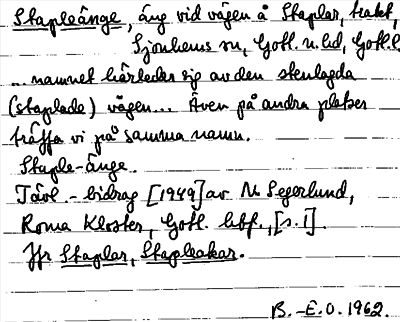 Stapleänge, äng vid vägen å Staplar, trakt,
Sjonhems sn, Gotl. n. hd, Gotl. l.
... namnet härleder sig av den stenlagda
(staplade) vägen... Även på andra platser
träffa vi på samma namn.
Staple-änge.
Tävl.-bidrag [1949] av N. Segerlund,
Roma Kloster, Gotl. hff., [s. 1].
Jfr Staplar, Stapleakar.
B.-E.O. 1962.